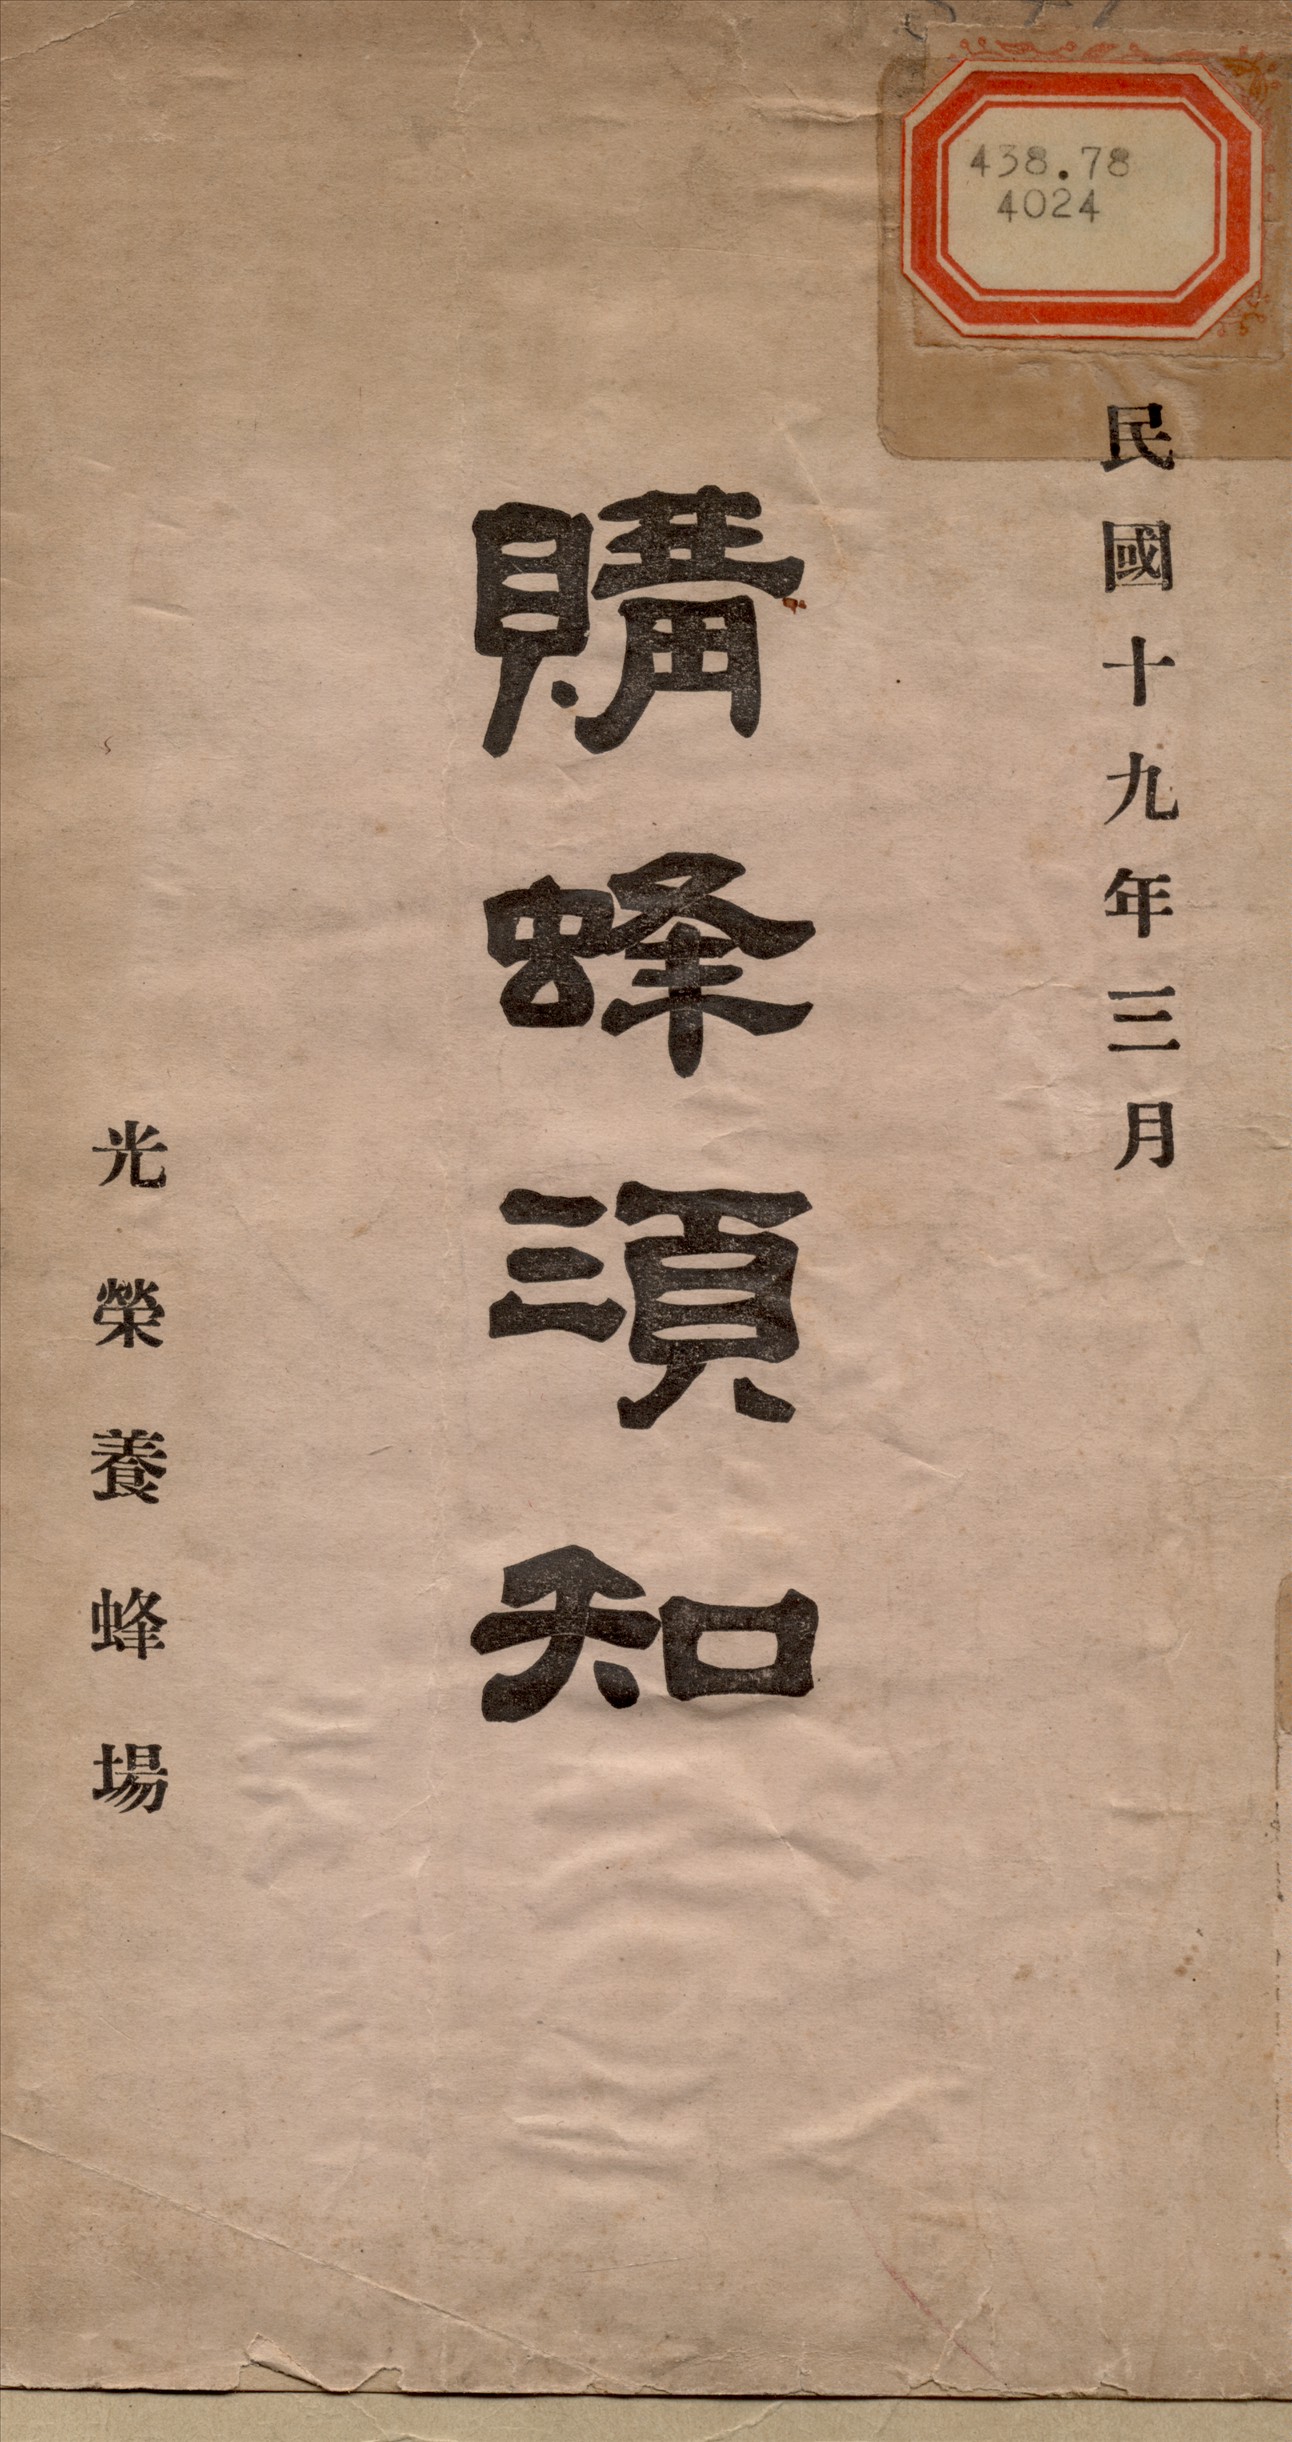 438.78
4024
民國十九年三月
購蜂須知
光榮養蜂場